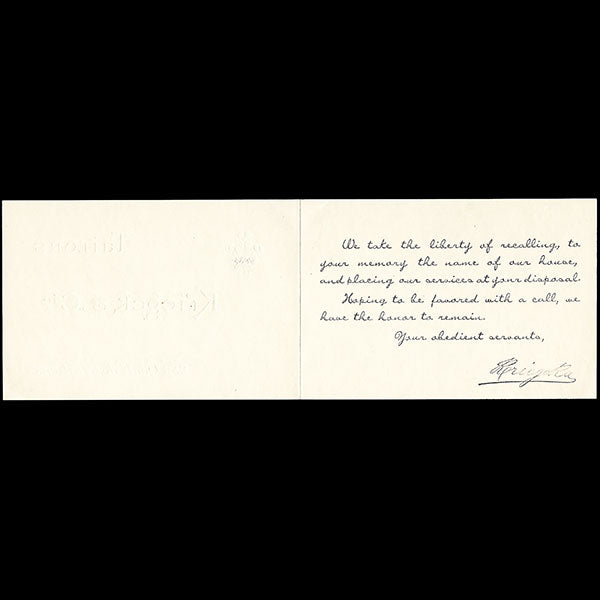 Tailors
Kriegck & Co
We take the liberty of recalling, to
your memory the name of our house,
and placing our services at your disposal.
Hoping to be favored with a call, we
have the honor to remain.
Your obedient servants,